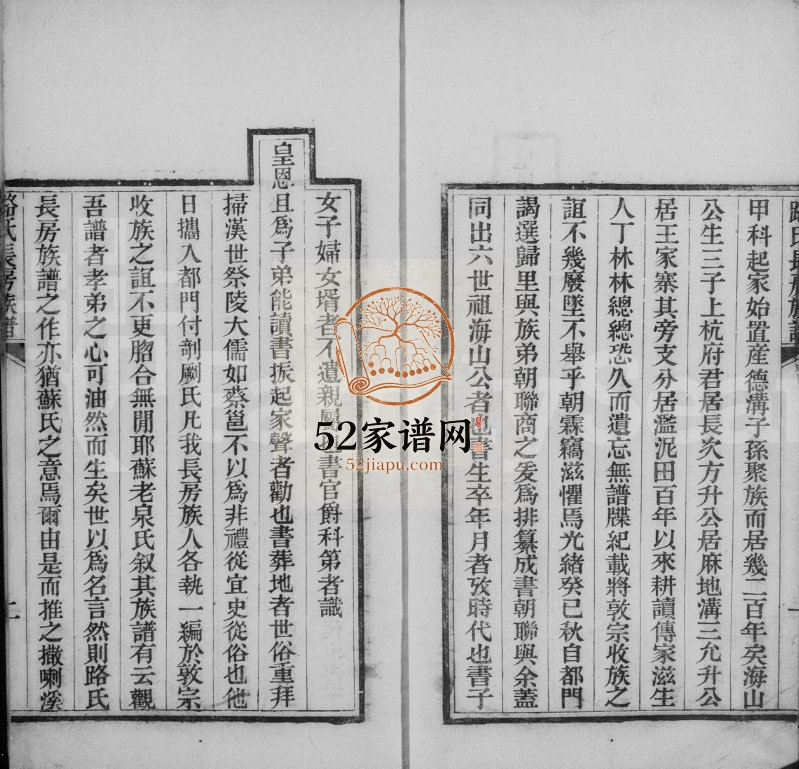 路氏長房族譜
甲科起家始置産德溝子孫聚族而居幾二百年矣海山
公生三子上杭府君居長次方升公居麻地溝三允升公
居王家寨其旁支分居濫泥田百年以來耕讀傳家滋生
人丁林林總總恐久而遺忘無譜牒紀載將敦宗收族之
誼不幾廢墜不舉乎朝霖竊滋懼焉光緒癸巳秋自都門
謁選歸里與族弟朝聯商之爰爲排纂成書朝聯與余蓋
同出六世祖海山公者也書生卒年月者攷時代也書子
女子婦女壻者不遺親屬書官爵科第者識
皇恩且爲子弟能讀書振起家聲者勸也書葬地者世俗重拜
掃漢世祭陵大儒如蔡邕不以爲非禮從宜史從俗也他
日攜入都門付剞劂氏凡我長房族人各執一編於敦宗
收族之誼不更脗合無閒耶蘇老泉氏叙其族譜有云觀
吾譜者孝弟之心可油然而生矣世以爲名言然則路氏
長房族譜之作亦猶蘇氏之意焉爾由是而推之撒喇溪
路氏長房族譜
二
52家谱网
52jiapu.com